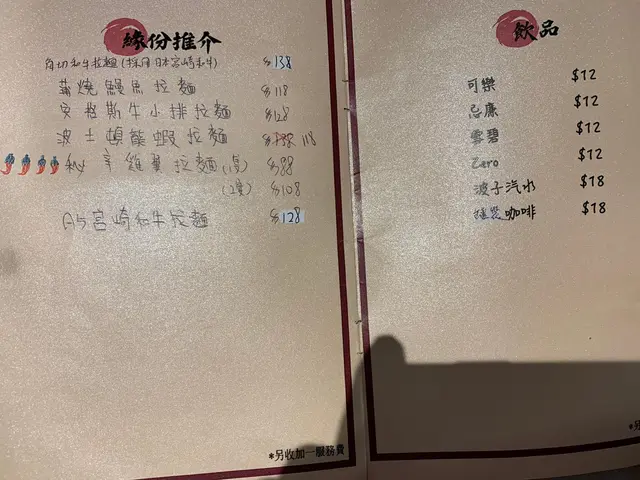 緣份推介
角切和牛拉麵(採用日本宮崎和牛) $138
蒲燒鰻魚拉麵 $118
安格斯牛小排拉麵 $128
波士頓龍蝦拉麵 $138 118
秘辛雞翼拉麵(1隻) $88
(2隻) $108
A5宮崎和牛拉麵 $128
*另收加一服務費
飲品
可樂 $12
忌廉 $12
雪碧 $12
Zero $12
波子汽水 $18
咖啡 $18
*另